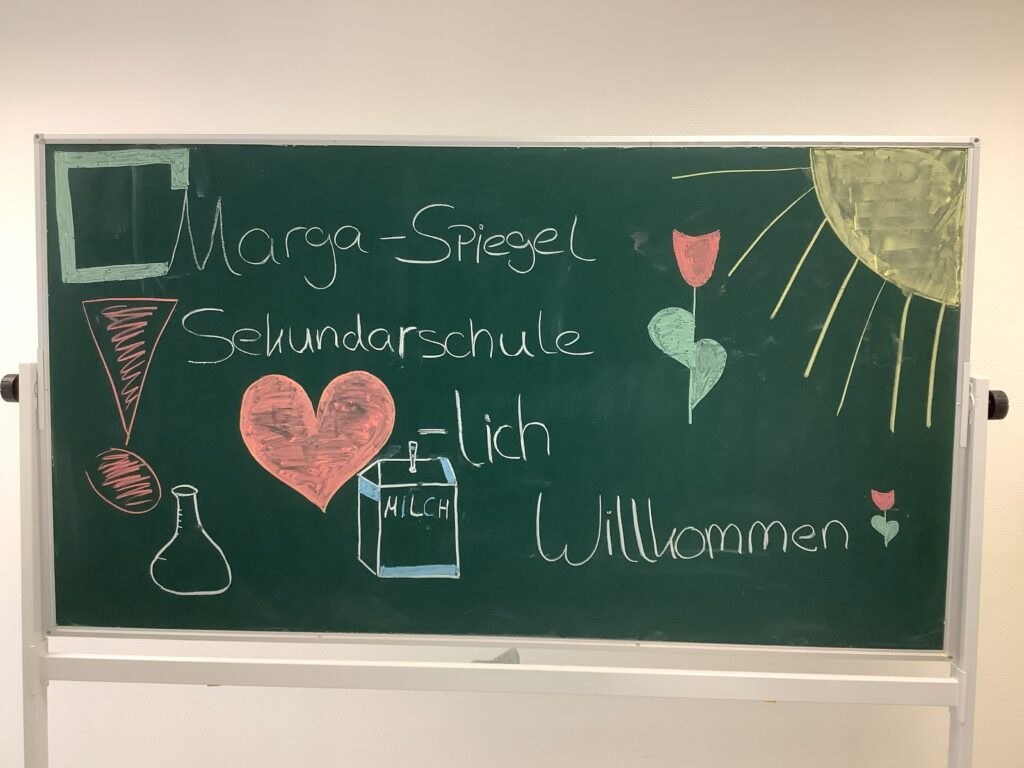 Marga-Spiegel
Sekundarschule
-lich
MILCH
Willkommen